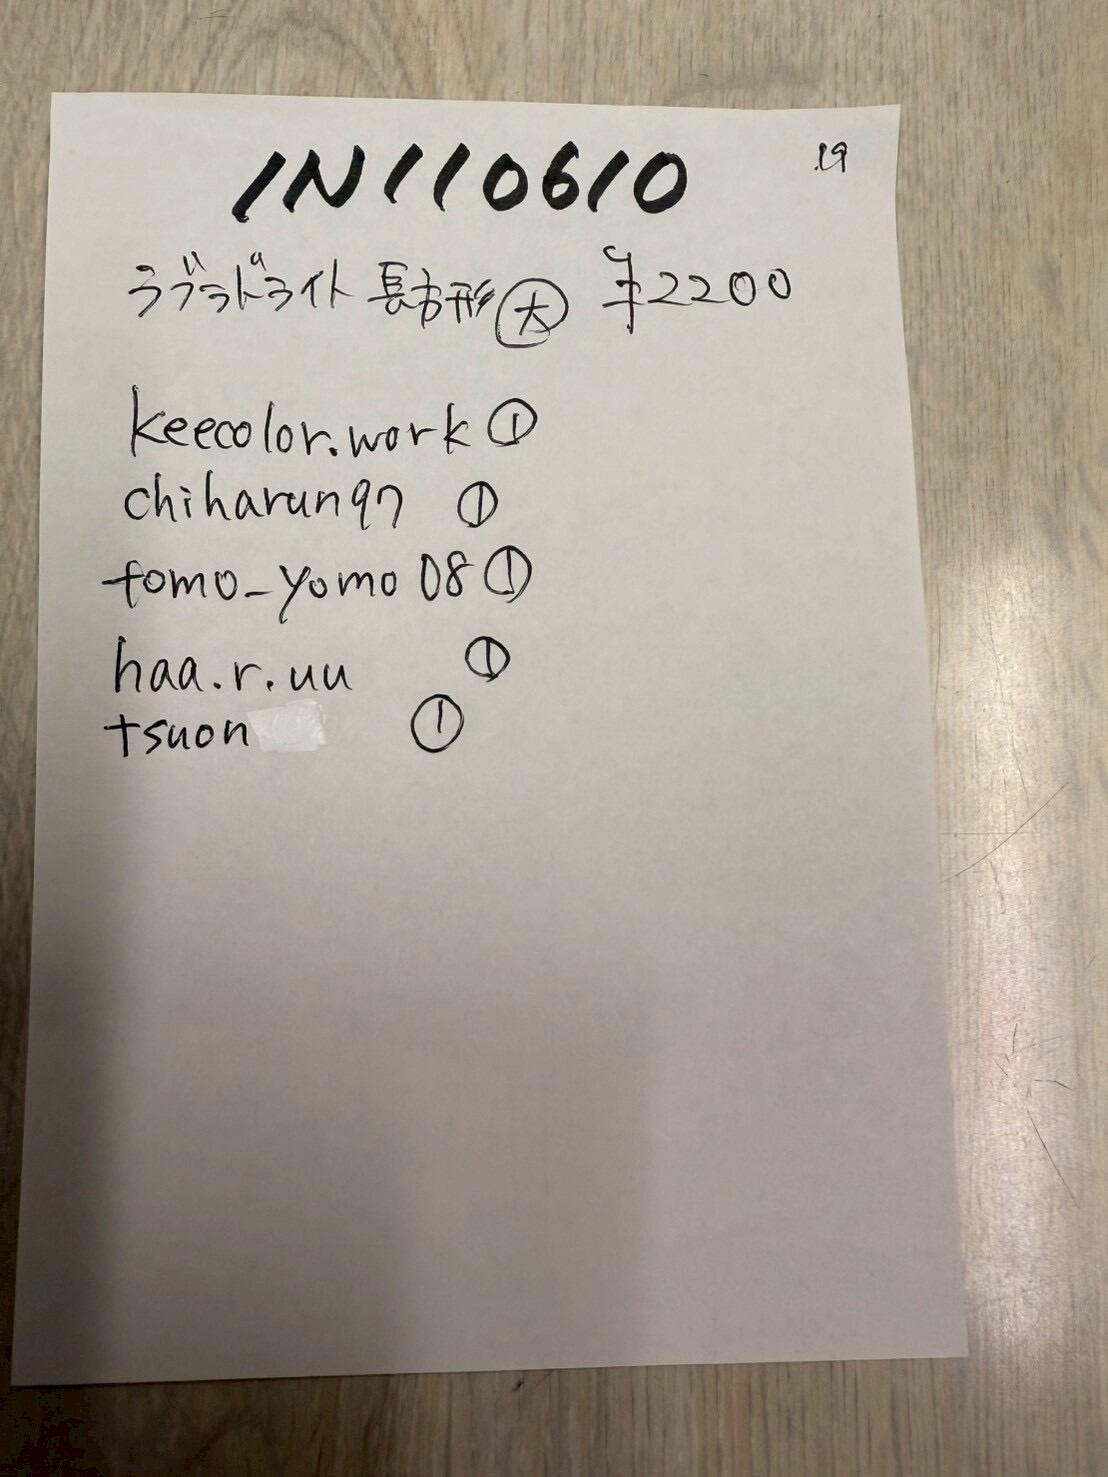 IN110610
.19
ラブラドライト 長方形 大 ¥2200
keecolor.work ①
chiharun97 ①
tomo_yomo08 ①
haa.r.uu ①
tsuon ①